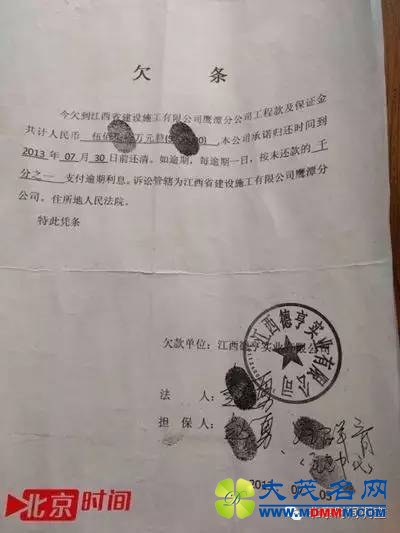 欠 条
今欠到江西省建设施工有限公司鹰潭分公司工程款及保证金
共计人民币 伍佰 万元整
,本公司承诺归还时间到
2013 年 07 月 30 日前还清。如逾期,每逾期一日,按未还款的 千
分之一 支付逾期利息。诉讼管辖为江西省建设施工有限公司鹰潭分
公司。住所地人民法院。
特此凭条
欠款单位:江西德亨实业有限公司
江西德亨实业有限公司
法 人: 勇
担 保 人: 勇
北京时间
大茂名网
MDMMM.COM